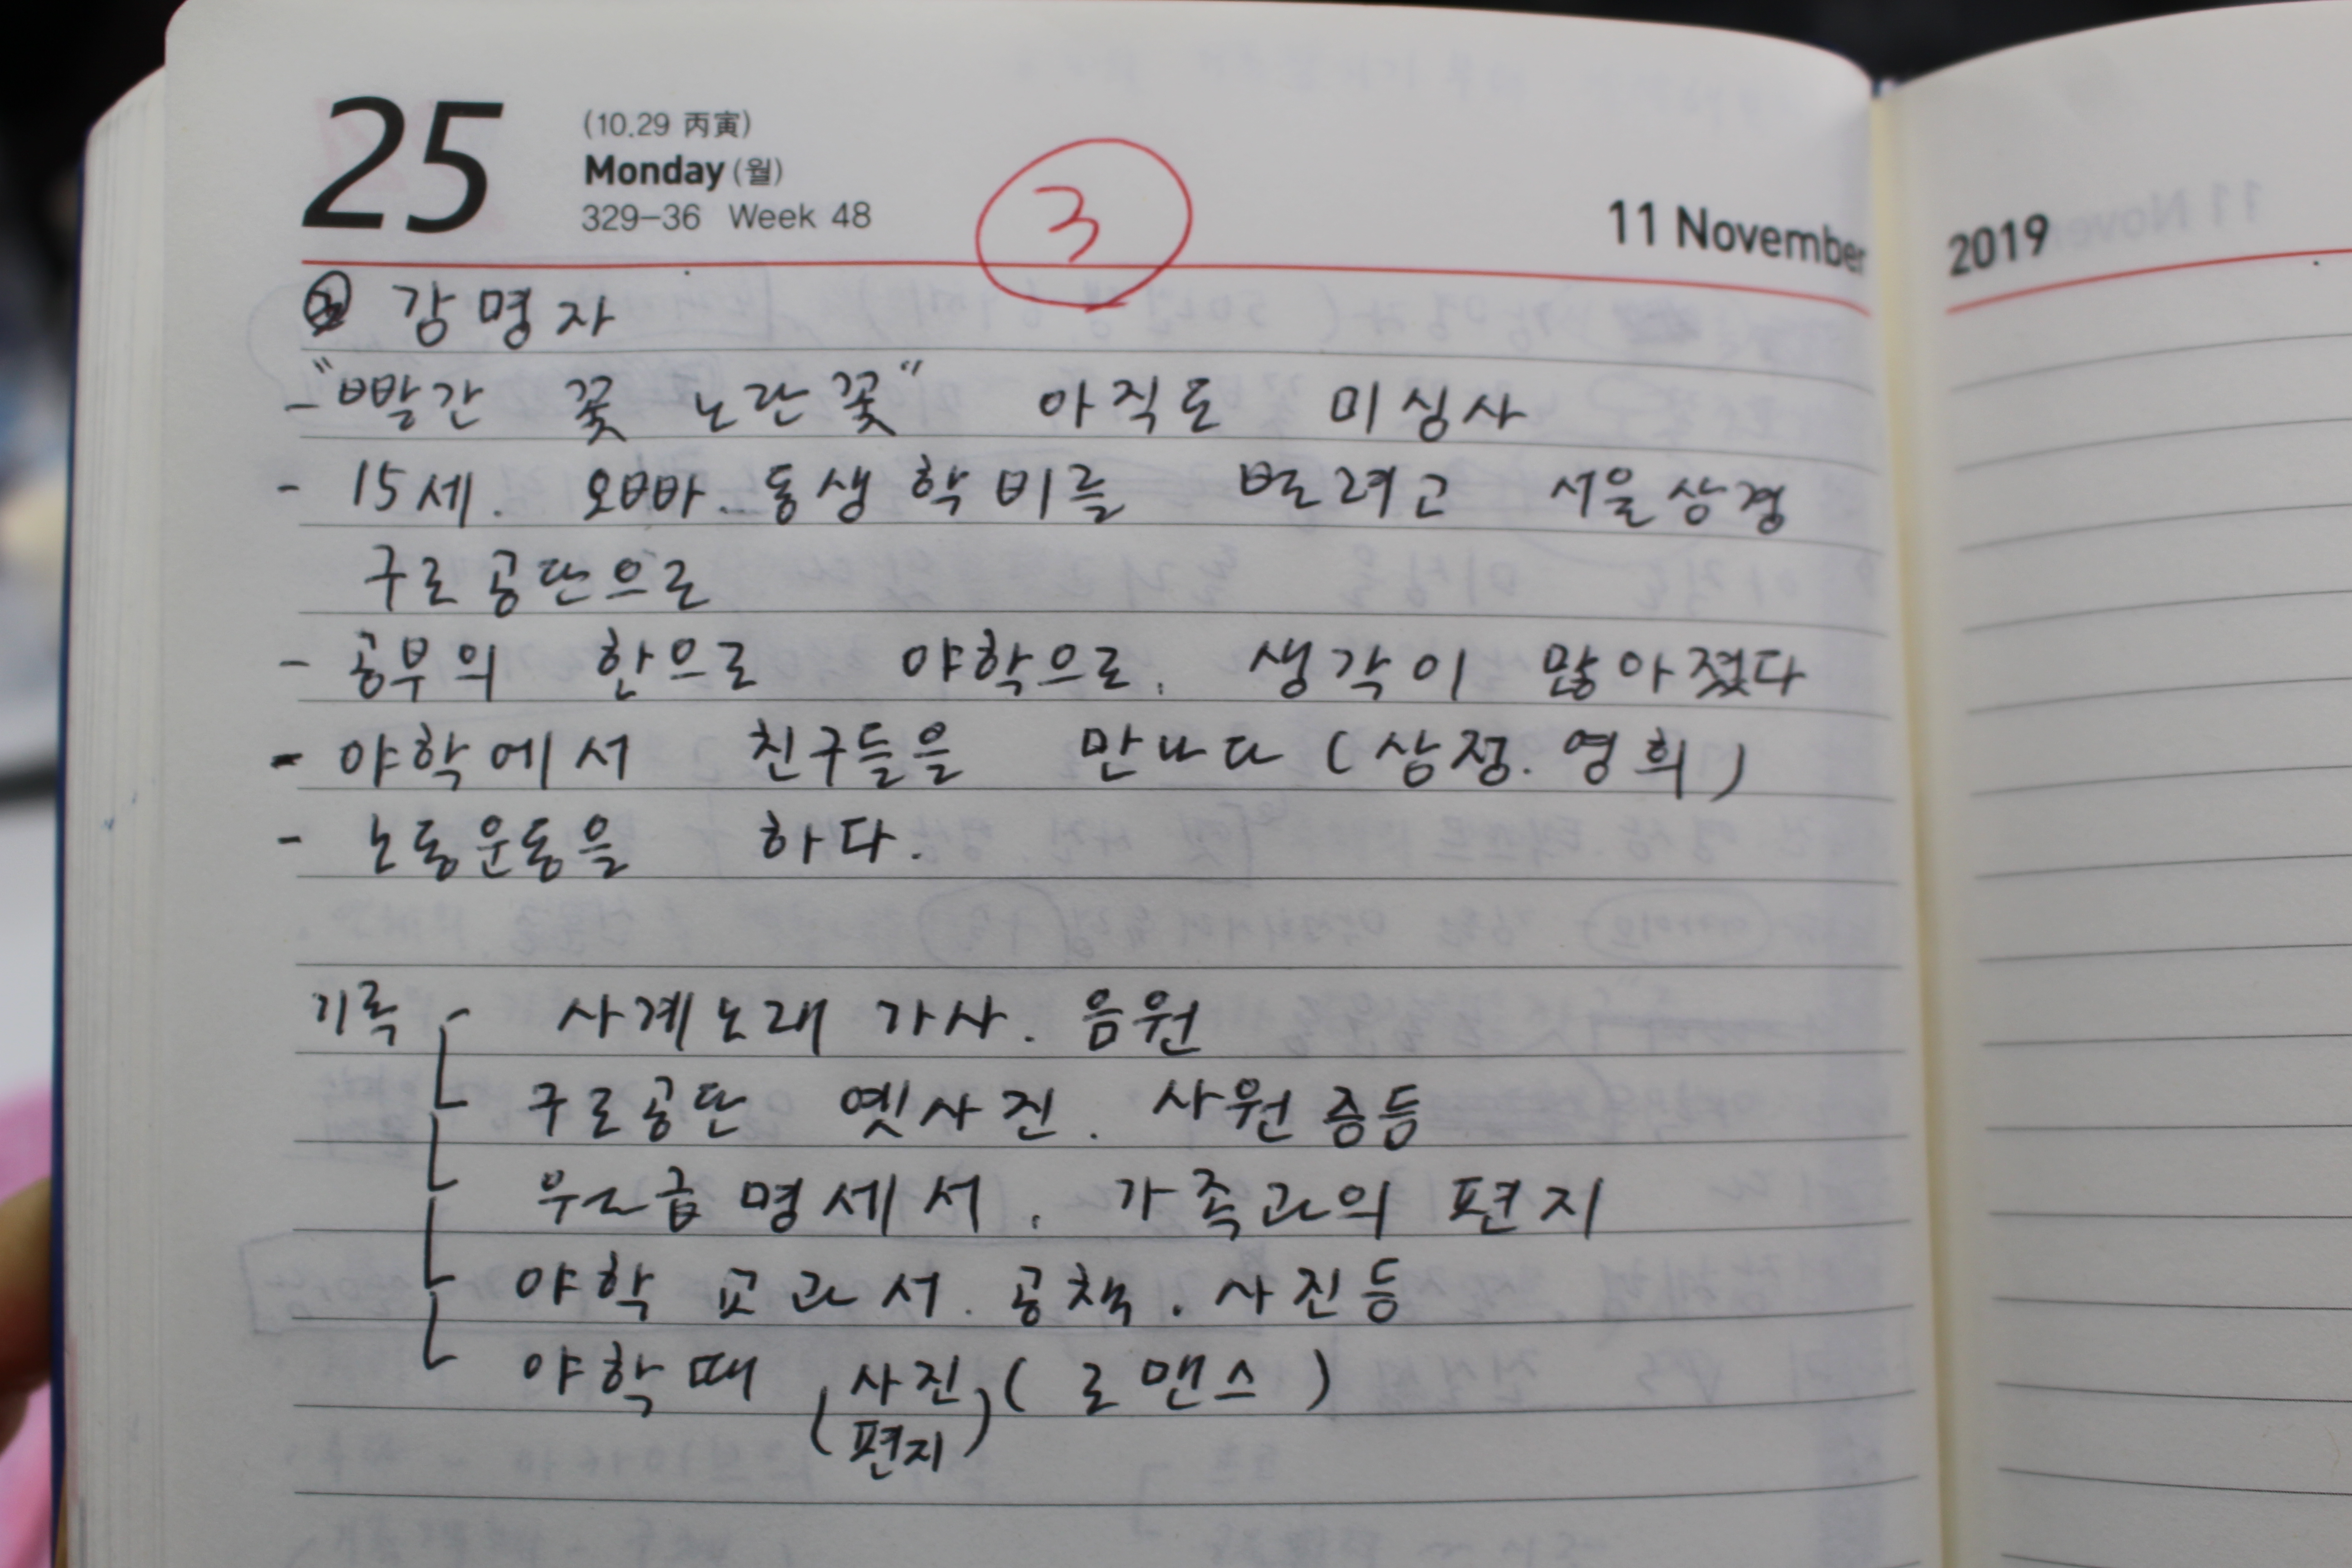 25 (10.29 丙寅)
Monday (월)
329-36 Week 48
③
11 November
2019
강명자
- "빨간 꽃 노란꽃" 아직도 미싱사
- 15세. 오빠. 동생 학비를 벌려고 서울상경
구로공단으로
- 공부의 한으로 야학으로. 생각이 많아졌다
- 야학에서 친구들을 만나다 (삼정. 영희)
- 노동운동을 하다.
기록 - 사계노래 가사. 음원
구로공단 옛사진. 사원증등
월급명세서. 가족과의 편지
야학 교과서. 공책. 사진등
야학때 (사진 (로맨스)
편지)